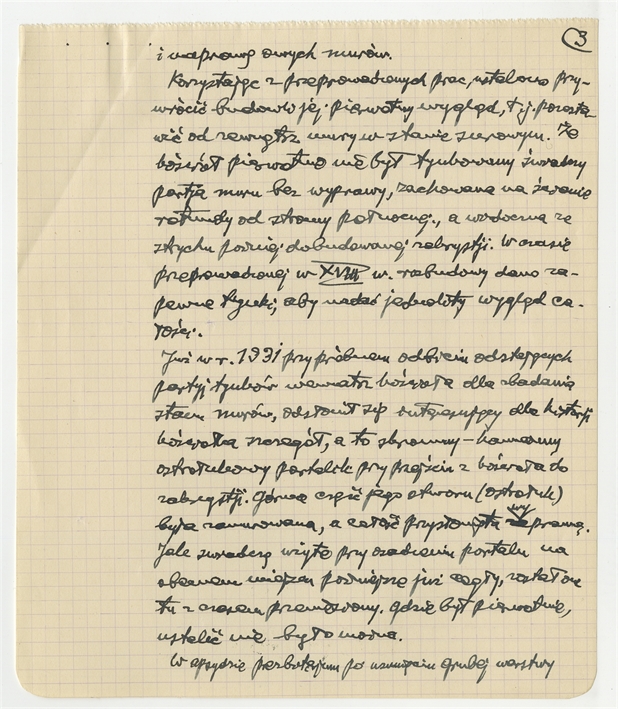 3
i naprawę owych murów.
Korzystając z przeprowadzonych prac, ustalono przy-
wrócić budowli jej pierwotny wygląd, t.j. pozosta-
wić od zewnątrz mury w stanie surowym. Że
kościół pierwotnie nie był tynkowany świadczy
partja muru bez wyprawy, zachowana na ścianie
rotundy od strony północnej, a widoczna ze
strychu później dobudowanej zakrystji. W czasie
przeprowadzonej w XVIII w. rozbudowy dano za-
pewne tynki, aby nadać jednolity wygląd ca-
łości.
Już w r. 1931 przy próbnem odbiciu odstających
partyj tynków wewnątrz kościoła dla zbadania
stanu murów, odsłonił się interesujący dla historji
kościółka szczegół, a to skromny – kamienny
ostrołukowy portalik przy przejściu z kościoła do
zakrystji. Górna część jego otworu (ostrołuk)
była zamurowana, a całość przysłonięta wyprawą.
Jak świadczą użyte przy osadzeniu portalu na
obecnem miejscu późniejsze już cegły, został on
tu z czasem przeniesiony. Gdzie był pierwotnie,
ustalić nie było można.
W apsydzie prezbiterjum po usunięciu grubej warstwy